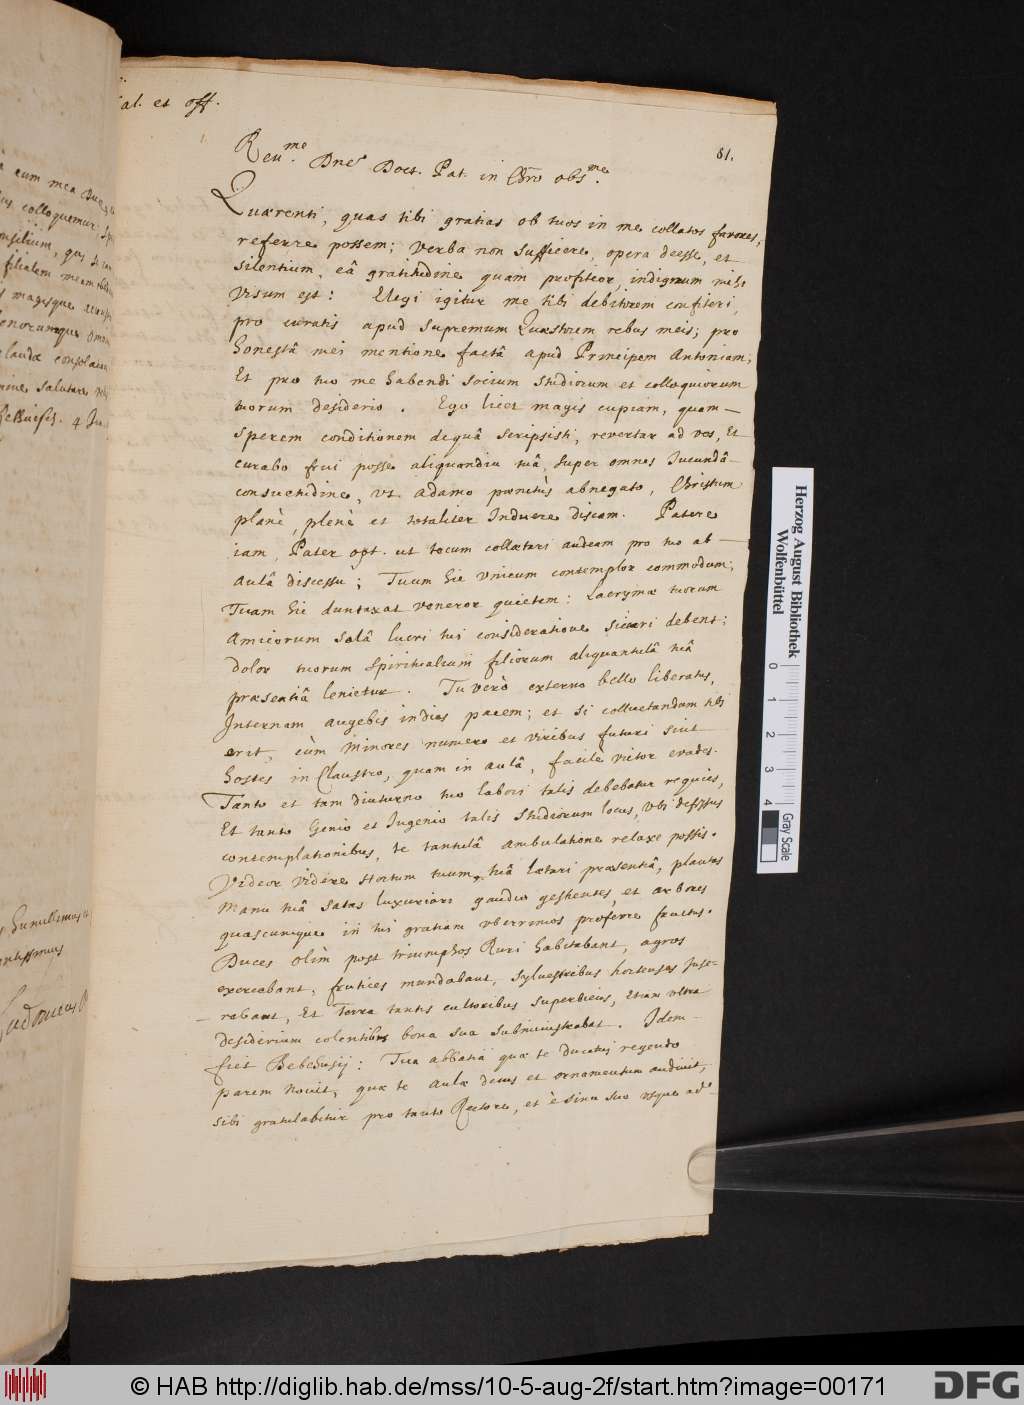 Sal. et off.
81.
Reu.me Dne Doct. Pat. in Chro obs.me
Quærenti, quas tibi gratias ob tuos in me collatos favores,
referre possem; verba non sufficere, opera deesse, et
silentium, eâ gratitudine quam profiteor, indignum mihi
visum est: Elegi igitur me tibi debitorem confiteri,
pro curatis apud supremum Quæstorem rebus meis; pro
honestâ mei mentione factâ apud Principem Antoniam;
Et pro tuo me habendi socium studiorum et colloquiorum
tuorum desiderio. Ego licet magis cupiam, quam
sperem conditionem de quâ scripsisti, revertar ad vos, Et
curabo frui posse aliquandiu tuâ, super omnes Jucundâ
consuetudine, vt Adamo pœnitùs abnegato, Christum
planè, plenè et totaliter Induere discam. Patere
iam, Pater opt. ut tecum collætari audeam pro tuo ab
Aulâ discessu; Tuum hic vnicum contemplor commodum;
Tuam hic duntaxat veneror quietem: Lacrymæ tuorum
Amicorum solâ lucri tui consideratione siccari debent;
dolor tuorum spiritualium filiorum aliquantulâ tuâ
præsentiâ lenietur. Tu verò externo bello liberatus,
Internam augebis in dies pacem; et si colluctandum tibi
erit, cùm minores numero et viribus futuri sint
hostes in Claustro, quam in aulâ, facile victor evades.
Tanto et tam diuturno tuo labori talis debebatur requies,
Et tanto Genio et Ingenio talis studiorum locus, vbi defessus
contemplationibus, te tantulâ ambulatione relaxe possis.
Videor videre hortum tuum, tuâ lætari præsentiâ, plantas
manu tuâ satas luxuriari gaudio gestientes, et arbores
quascunque in tui gratiam vberrimos proferre fructus.
Duces olìm post triumphos Ruri habitabant, agros
exercebant, frutices mundabant, sylvestribus hortenses Inse-
rebant, Et Terra tantis cultoribus superbiens, Etiam vltra
desiderium colentibus bona sua subministrabat. Idem
fiet Bebehusij: Tua abbatia quæ te Ducatui regendo
parem novit, quæ te Aulæ decus et ornamentum audivit,
sibi gratulabitur pro tanto Rectore, et è sinu suo vsque ad
cum mea
colloquemur
filialem meam
magisque
consolation
salutare
4 Ju
humillimus
Herzog August Bibliothek
Wolfenbüttel
0 1 2 3 4
Gray Scale
© HAB http://diglib.hab.de/mss/10-5-aug-2f/start.htm?image=00171
DFG